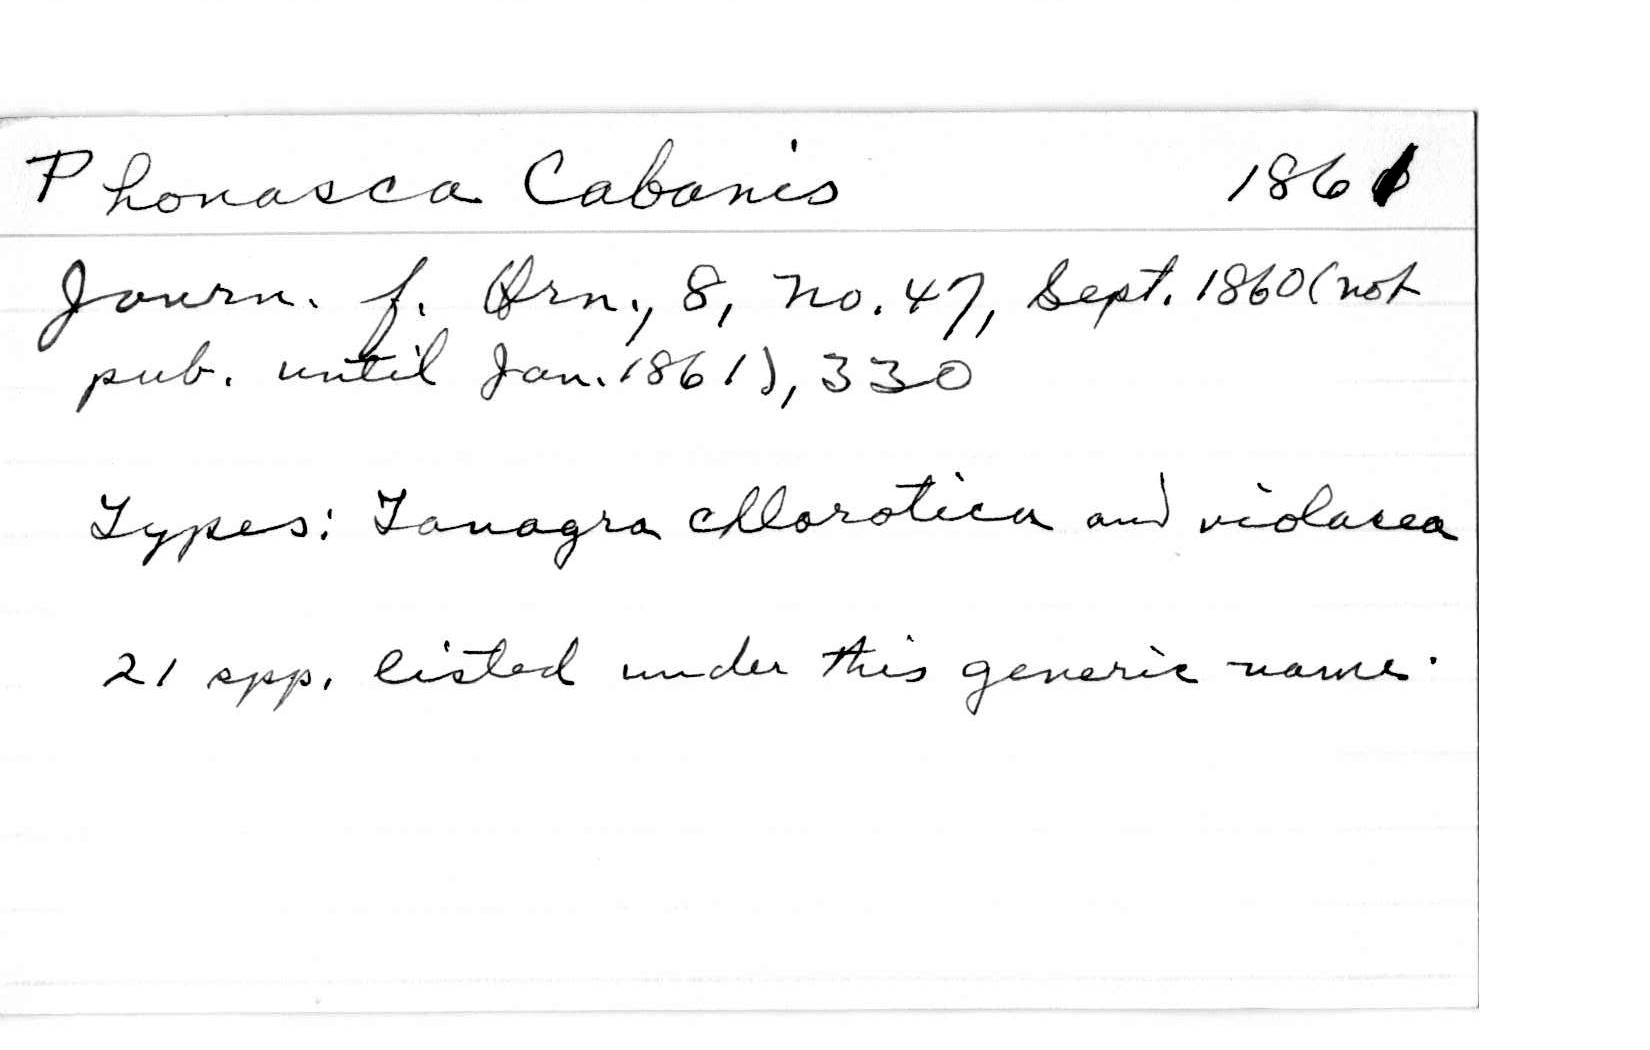 Phonasca Cabanis 1861
Journ. f. Orn., 8, no. 47, Sept. 1860 (not
pub. until Jan. 1861), 330
Types: Tanagra chlorotica and violacea
21 spp. listed under this generic name.